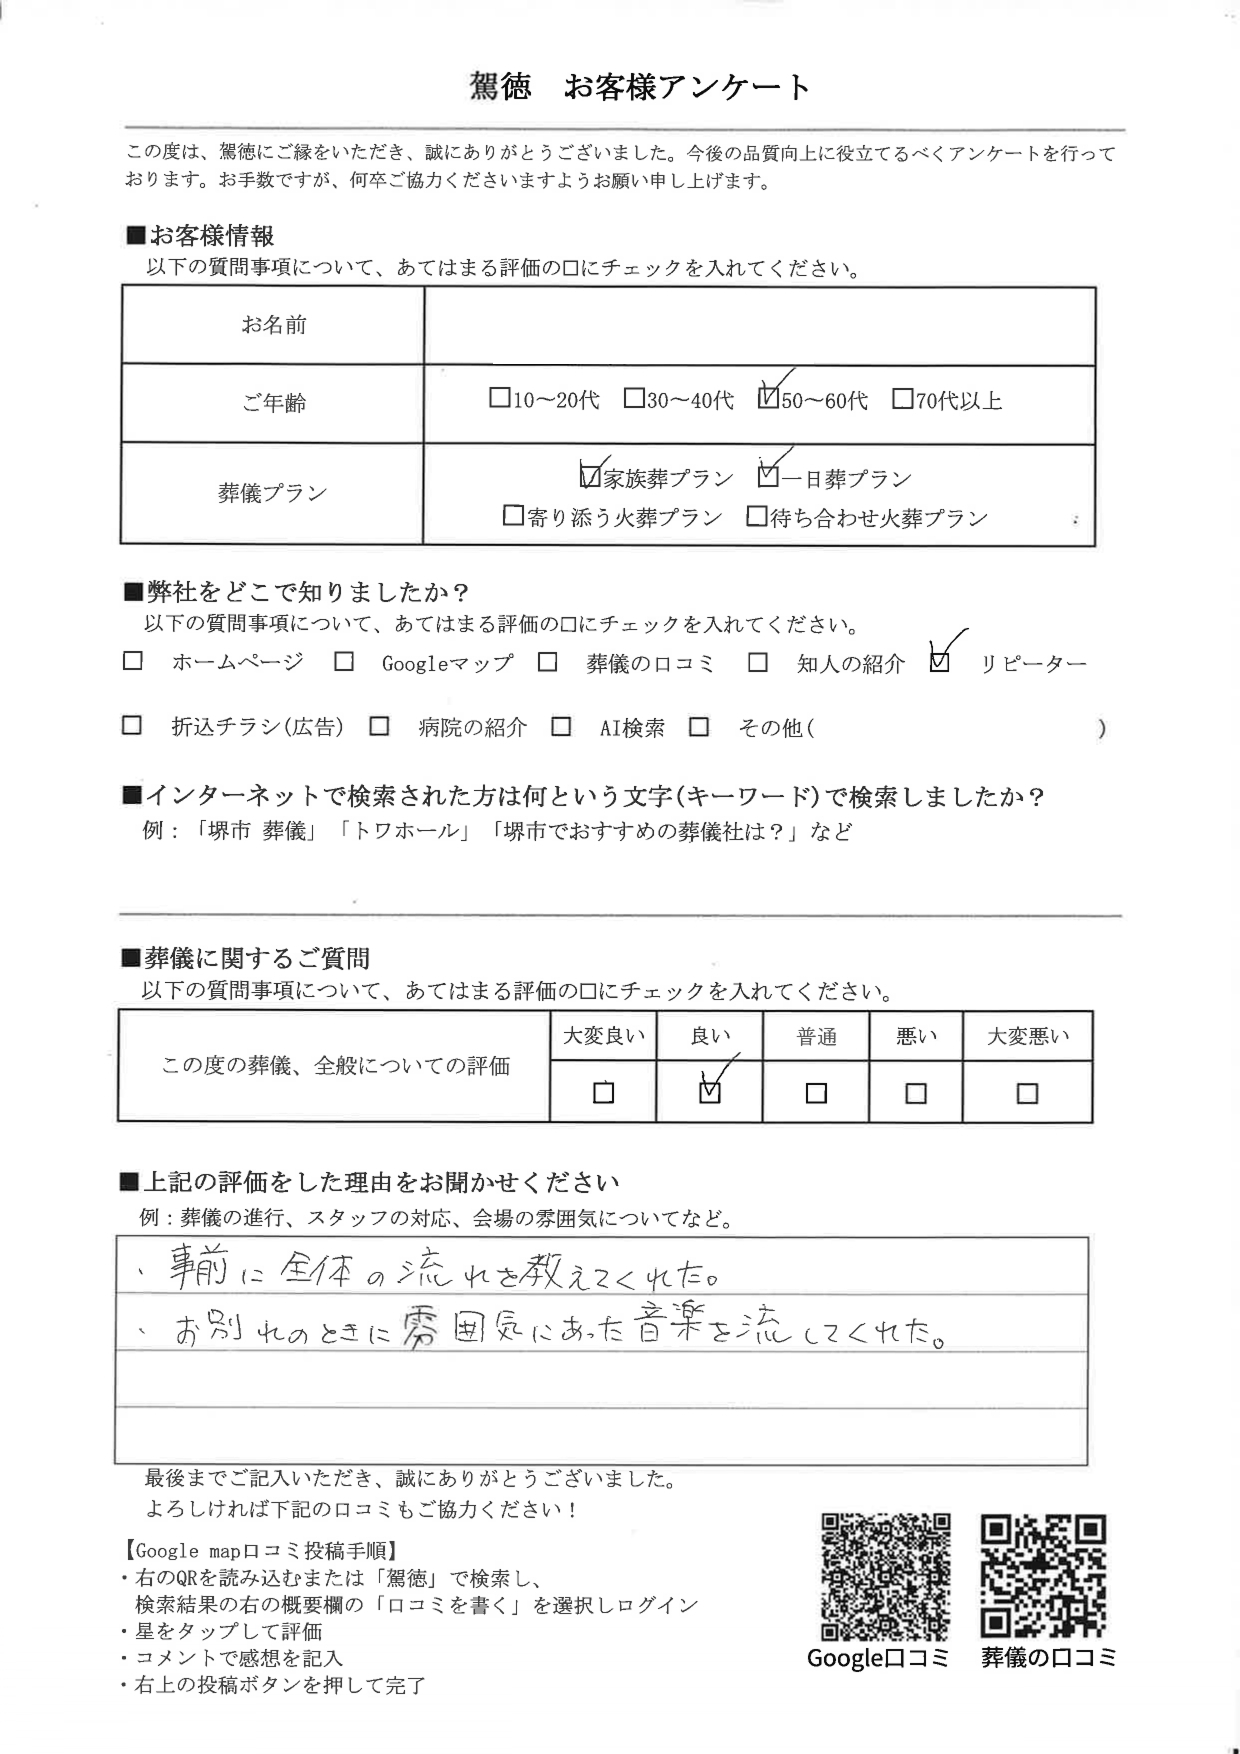 駕徳　お客様アンケート
この度は、駕徳にご縁をいただき、誠にありがとうございました。今後の品質向上に役立てるべくアンケートを行って
おります。お手数ですが、何卒ご協力くださいますようお願い申し上げます。
■お客様情報
以下の質問事項について、あてはまる評価の口にチェックを入れてください。
お名前
ご年齢
□10～20代　□30～40代　☑50～60代　□70代以上
葬儀プラン
☑家族葬プラン　☑一日葬プラン
□寄り添う火葬プラン　□待ち合わせ火葬プラン
■弊社をどこで知りましたか？
以下の質問事項について、あてはまる評価の口にチェックを入れてください。
□　ホームページ　□　Googleマップ　□　葬儀の口コミ　□　知人の紹介　☑　リピーター
□　折込チラシ(広告)　□　病院の紹介　□　AI検索　□　その他(　　　　　　　)
■インターネットで検索された方は何という文字(キーワード)で検索しましたか？
例：「堺市 葬儀」「トワホール」「堺市でおすすめの葬儀社は？」など
■葬儀に関するご質問
以下の質問事項について、あてはまる評価の口にチェックを入れてください。
この度の葬儀、全般についての評価
大変良い　良い　普通　悪い　大変悪い
□　☑　□　□　□
■上記の評価をした理由をお聞かせください
例：葬儀の進行、スタッフの対応、会場の雰囲気についてなど。
、事前に全体の流れを教えてくれた。
、お別れのときに雰囲気にあった音楽を流してくれた。
最後までご記入いただき、誠にありがとうございました。
よろしければ下記の口コミもご協力ください！
【Google map口コミ投稿手順】
・右のQRを読み込むまたは「駕徳」で検索し、
検索結果の右の概要欄の「口コミを書く」を選択しログイン
・星をタップして評価
・コメントで感想を記入
・右上の投稿ボタンを押して完了
Google口コミ　葬儀の口コミ